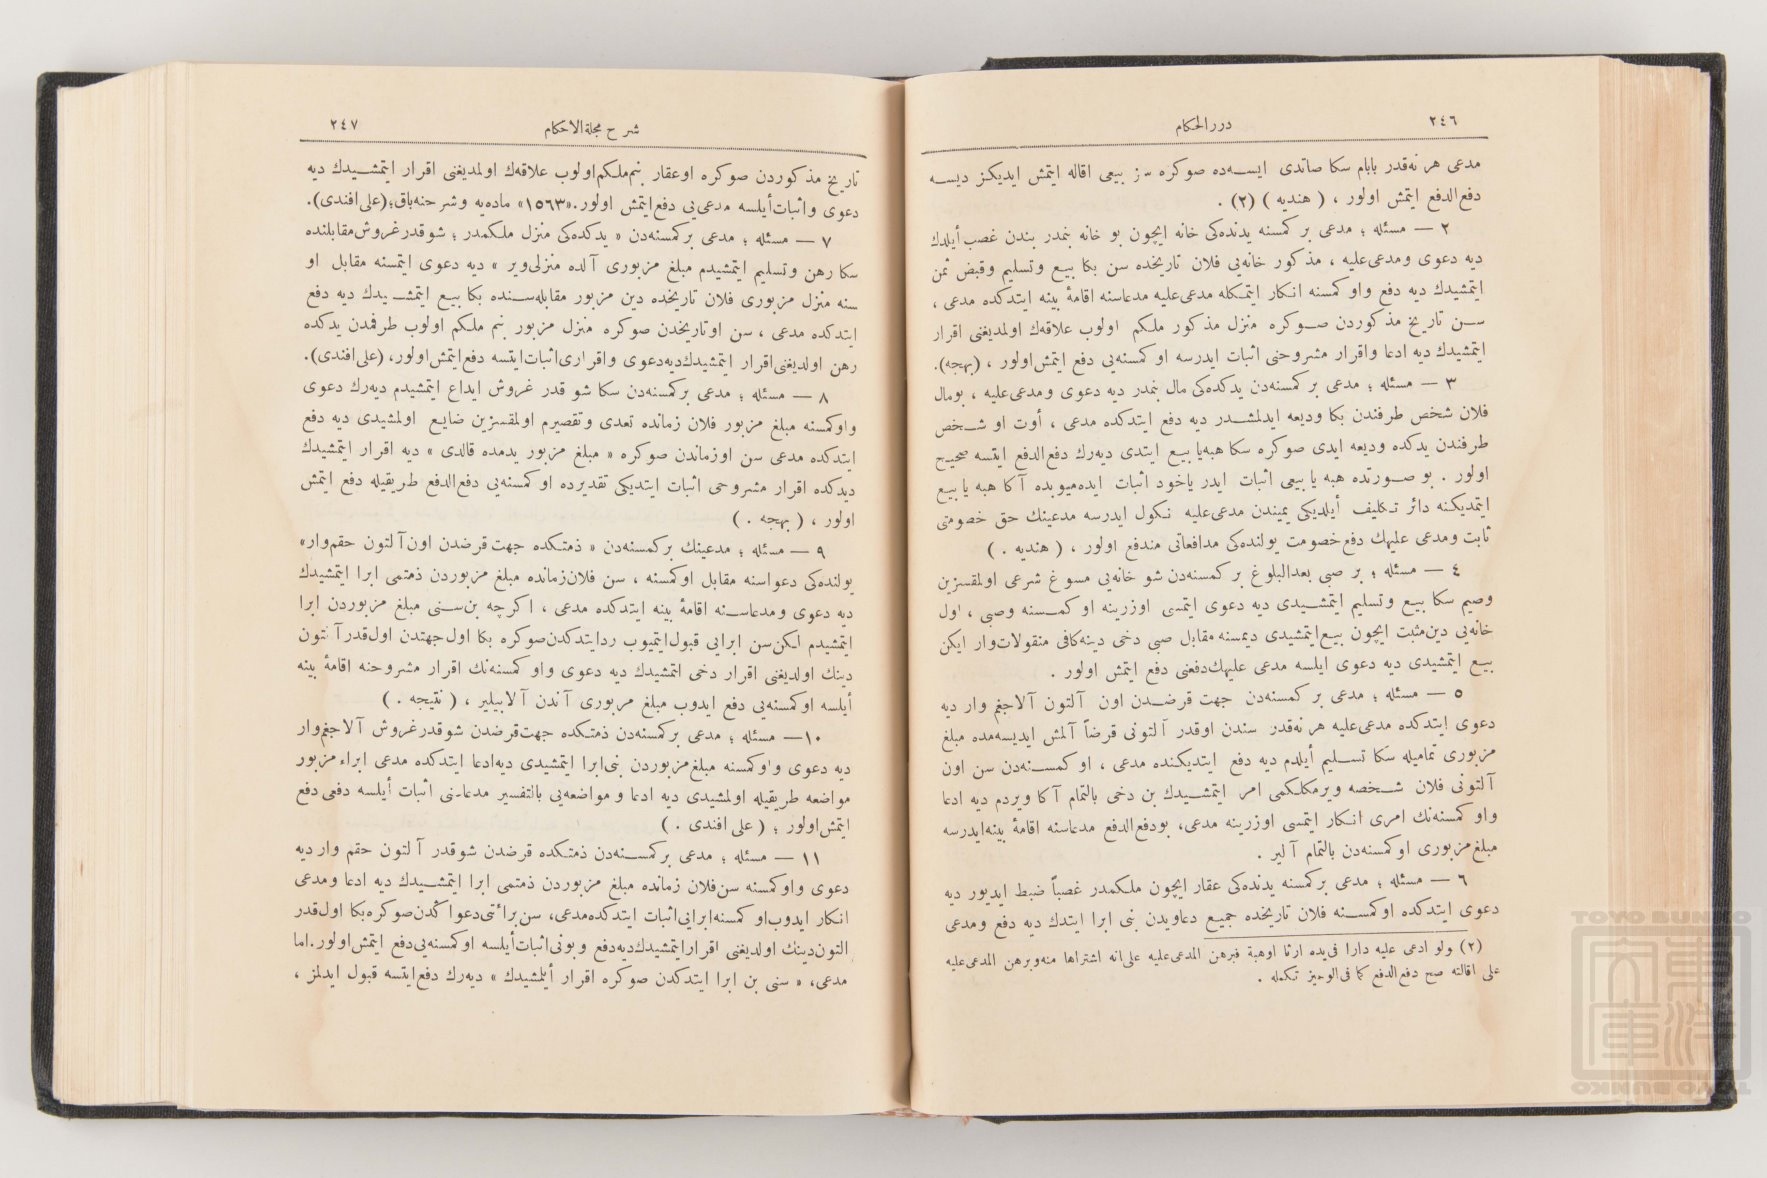 ٢٤٦
دررالحكام
مدعى هر نه‌قدر بابام سكا صاتدى ايسه‌ده صوكره سز بيعى اقاله ايتمش ايديكز ديسه
دفع‌الدفع ايتمش اولور ، ( هنديه ) (٢) .
٢ — مسئله ؛ مدعى بر كمسنه يدنده‌كى خانه ايچون بو خانه بنمدر بندن غصب أيلدك
ديه دعوى ومدعى‌عليه ، مذكور خانه‌يى فلان تاريخده سن بكا بيع وتسليم وقبض ثمن
ايتمشيدك ديه دفع واو كمسنه انكار ايتمكله مدعى‌عليه مدعاسنه اقامهٔ بينه ايتدكده مدعى ،
سن تاريخ مذكوردن صوكره منزل مذكور ملكم اولوب علاقه‌ك اولمديغنى اقرار
ايتمشيدك ديه ادعا واقرار مشروحنى اثبات ايدرسه او كمسنه‌يى دفع ايتمش‌اولور ، (بهجه).
٣ — مسئله ؛ مدعى بر كمسنه‌دن يدكده‌كى مال بنمدر ديه دعوى ومدعى‌عليه ، بومال
فلان شخص طرفندن بكا وديعه ايدلمشدر ديه دفع ايتدكده مدعى ، أوت او شخص
طرفندن يدكده وديعه ايدى صوكره سكا هبه‌يا بيع ايتدى ديه‌رك دفع‌الدفع ايتسه صحيح
اولور . بو صورتده هبه يا بيعى اثبات ايدر ياخود اثبات ايده‌ميوبده آكا هبه يا بيع
ايتمديكنه دائر تكليف أيلديكى يميندن مدعى‌عليه نكول ايدرسه مدعينك حق خصومتى
ثابت ومدعى عليهك دفع خصومت يولنده‌كى مدافعاتى مندفع اولور ، ( هنديه . )
٤ — مسئله ؛ بر صبى بعدالبلوغ بر كمسنه‌دن شو خانه‌يى مسوغ شرعى اولمقسزين
وصيم سكا بيع وتسليم ايتمشيدى ديه دعوى ايتمسى اوزرينه او كمسنه وصى ، اول
خانه‌يى دين‌مثبت ايچون بيع‌ايتمشيدى ديمسنه مقابل صبى دخى دينه‌كافى منقولات‌وار ايكن
بيع ايتمشيدى ديه دعوى ايلسه مدعى عليهك‌دفعنى دفع ايتمش اولور .
٥ — مسئله ؛ مدعى بر كمسنه‌دن جهت قرضدن اون آلتون آلاجغم وار ديه
دعوى ايتدكده مدعى‌عليه هر نه‌قدر سندن اوقدر آلتونى قرضاً آلمش ايديسه‌مده مبلغ
مزبورى تماميله سكا تسليم أيلدم ديه دفع ايتديكنده مدعى ، او كمسنه‌دن سن اون
آلتونى فلان شخصه ويرمكلكمى امر ايتمشيدك بن دخى بالتمام آكا ويردم ديه ادعا
واو كمسنه‌نك امرى انكار ايتمسى اوزرينه مدعى، بودفع‌الدفع مدعاسنه اقامهٔ بينه‌ايدرسه
مبلغ مزبورى اوكمسنه‌دن بالتمام آلير .
٦ — مسئله ؛ مدعى بركمسنه يدنده‌كى عقار ايچون ملكمدر غصباً ضبط ايديور ديه
دعوى ايتدكده اوكمسنه فلان تاريخده جميع دعاويدن بنى ابرا ايتدك ديه دفع ومدعى
(٢) ولو ادعى عليه دارا فى‌يده ارثا اوهبة فبرهن المدعى‌عليه على‌انه اشتراها منه‌وبرهن المدعى‌عليه
على اقالته صح دفع‌الدفع كما فى‌الوجيز تكمله .
شرح مجلةالاحكام
٢٤٧
تاريخ مذكوردن صوكره اوعقار بنم‌ملكم‌اولوب علاقه‌ك اولمديغنى اقرار ايتمشيدك ديه
دعوى واثبات‌أيلسه مدعى‌يى دفع‌ايتمش اولور. «١٥٦٣» ماده‌يه وشرحنه‌باق؛ (على‌افندى).
٧ — مسئله ؛ مدعى بركمسنه‌دن « يدكده‌كى منزل ملكمدر ؛ شوقدرغروش‌مقابلنده
سكا رهن وتسليم ايتمشيدم مبلغ مزبورى آلده منزلى‌وير » ديه دعوى ايتمسنه مقابل او
سنه منزل مزبورى فلان تاريخده دين مزبور مقابله‌سنده بكا بيع ايتمشيدك ديه دفع
ايتدكده مدعى ، سن اوتاريخدن صوكره منزل مزبور بنم ملكم اولوب طرفمدن يدكده
رهن اولديغنى‌اقرار ايتمشيدك‌ديه‌دعوى واقرارى‌اثبات‌ايتسه دفع‌ايتمش‌اولور، (على‌افندى).
٨ — مسئله ؛ مدعى بركمسنه‌دن سكا شو قدر غروش ايداع ايتمشيدم ديه‌رك دعوى
واوكمسنه مبلغ مزبور فلان زمانده تعدى وتقصيرم اولمقسزين ضايع اولمشيدى ديه دفع
ايتدكده مدعى سن اوزماندن صوكره « مبلغ مزبور يدمده قالدى » ديه اقرار ايتمشيدك
ديدكده اقرار مشروحى اثبات ايتديكى تقديرده او كمسنه‌يى دفع‌الدفع طريقيله دفع ايتمش
اولور ، ( بهجه . )
٩ — مسئله ؛ مدعينك بركمسنه‌دن « ذمتكده جهت قرضدن اون‌آلتون حقم‌وار»
يولنده‌كى دعواسنه مقابل اوكمسنه ، سن فلان‌زمانده مبلغ مزبوردن ذمتمى ابرا ايتمشيدك
ديه دعوى ومدعاسنه اقامهٔ بينه ايتدكده مدعى ، اكرچه بن‌سنى مبلغ مزبوردن ابرا
ايتمشيدم لكن‌سن ابرايى قبول‌ايتميوب ردايتدكدن‌صوكره بكا اول‌جهتدن اول‌قدرآلتون
دينك اولديغنى اقرار دخى اتمشيدك ديه دعوى واو كمسنه‌نك اقرار مشروحنه اقامهٔ بينه
أيلسه اوكمسنه‌يى دفع ايدوب مبلغ مزبورى آندن آلابيلير ، ( نتيجه . )
١٠— مسئله ؛ مدعى بركمسنه‌دن ذمتكده جهت‌قرضدن شوقدرغروش آلاجغم‌وار
ديه دعوى واوكمسنه مبلغ‌مزبوردن بنى‌ابرا ايتمشيدى ديه‌ادعا ايتدكده مدعى ابراء مزبور
مواضعه طريقيله اولمشيدى ديه ادعا و مواضعه‌يى بالتفسير مدعاسنى اثبات أيلسه دفعى دفع
ايتمش‌اولور ؛ ( على افندى . )
١١ — مسئله ؛ مدعى بركمسنه‌دن ذمتكده قرضدن شوقدر آلتون حقم وار ديه
دعوى واوكمسنه سن‌فلان زمانده مبلغ مزبوردن ذمتمى ابرا ايتمشيدك ديه ادعا ومدعى
انكار ايدوب‌او كمسنه‌ابرايى‌اثبات ايتدكده‌مدعى، سن‌برائتى‌دعواكدن‌صوكره‌بكا اول‌قدر
التون‌دينك اولديغنى اقرارايتمشيدك‌ديه‌دفع وبونى‌اثبات‌أيلسه اوكمسنه‌يى‌دفع ايتمش‌اولور.اما
مدعى، « سنى بن ابرا ايتدكدن صوكره اقرار أيلمشيدك » ديه‌رك دفع‌ايتسه قبول ايدلمز ،
TOYO BUNKO
東洋文庫
TOYO BUNKO